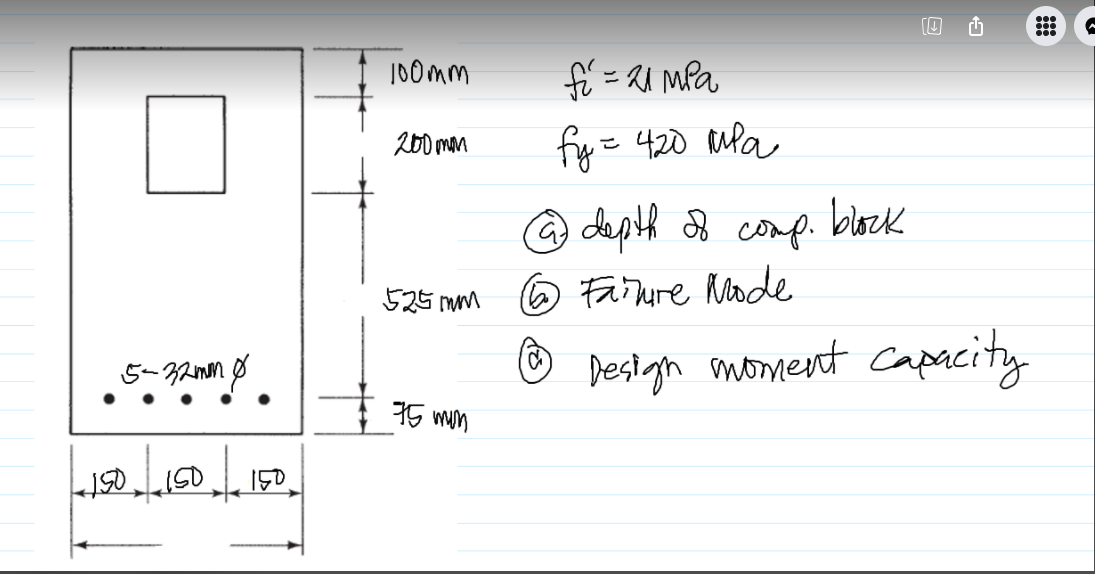 100mm
fc' = 21 MPa
200mm
fy = 420 MPa
ⓐ depth of comp. block
525 mm
ⓑ Failure Mode
5-32mm ∅
ⓒ Design moment capacity
75 mm
150 150 150